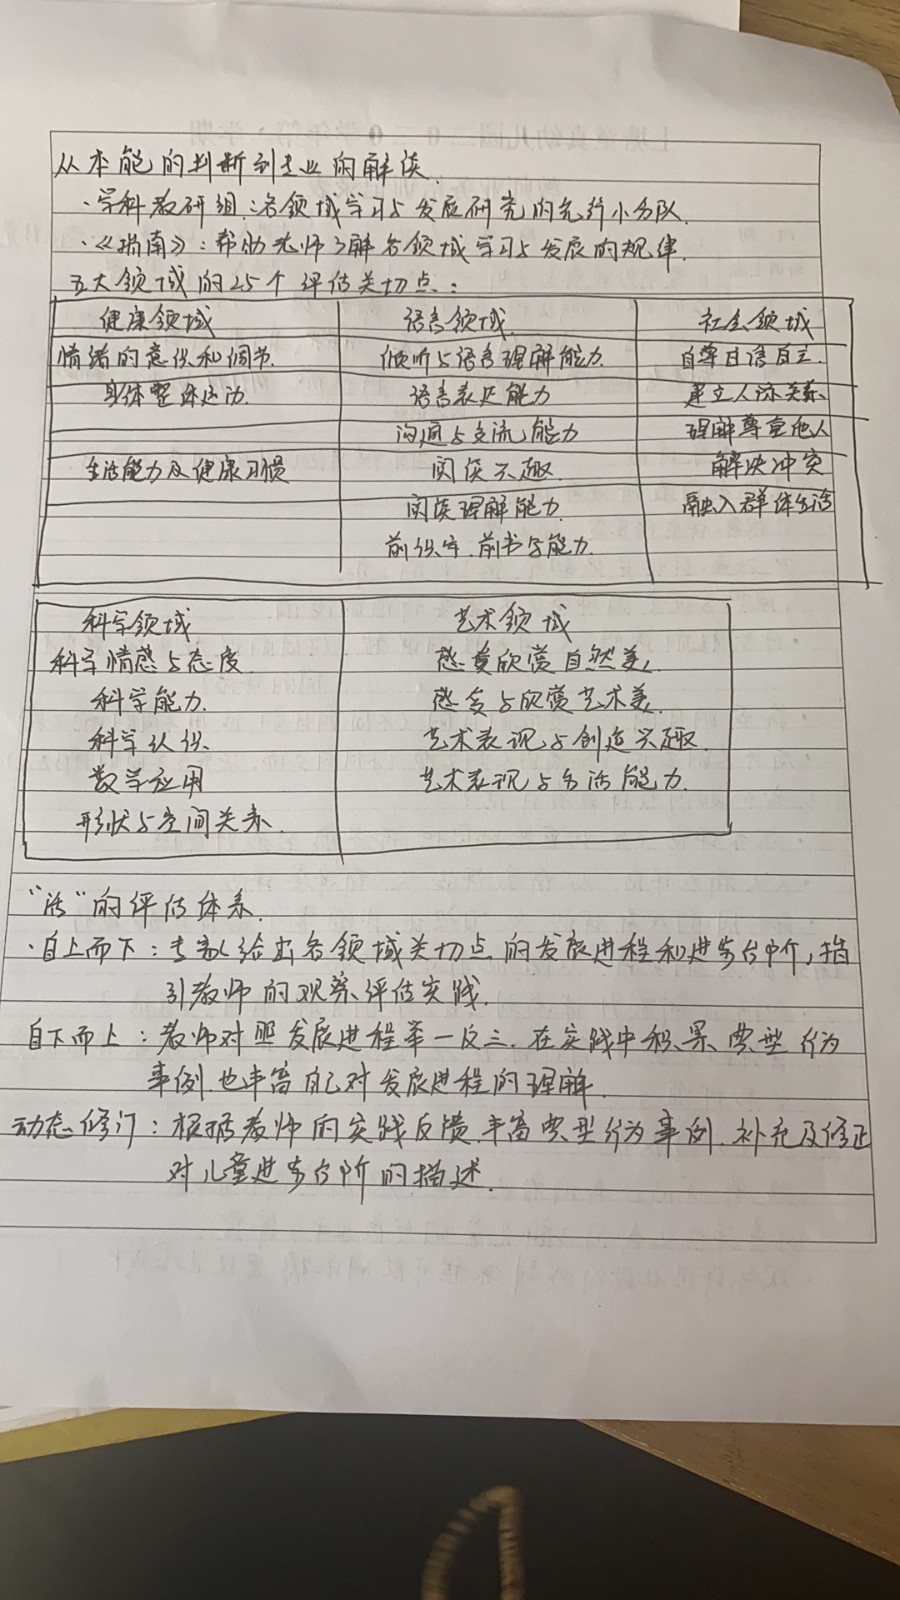 从本能的判断到专业的解读
·学科教研组：各领域学习与发展研究的先行小分队.
·《指南》：帮助老师了解各领域学习与发展的规律.
五大领域的25个评估关切点：
健康领域 语言领域 社会领域
情绪的意识和调节 倾听与语言理解能力 自尊自信自主.
身体整体运动 语言表达能力 建立人际关系
沟通与交流能力 理解尊重他人
生活能力及健康习惯 阅读兴趣 解决冲突
阅读理解能力 融入群体生活
前识字.前书写能力
科学领域 艺术领域
科学情感与态度 感受欣赏自然美
科学能力 感受与欣赏艺术美
科学认识 艺术表现与创造兴趣
数学应用 艺术表现与 能力
形状与空间关系
“活”的评估体系.
·自上而下：专家给出各领域关切点的发展进程和进步台阶,指
引教师的观察评估实践.
自下而上：教师对照发展进程举一反三.在实践中积累典型行为
事例.也丰富自己对发展进程的理解
动态修订：根据教师的实践反馈.丰富典型行为事例.补充及修正
对儿童进步台阶的描述.